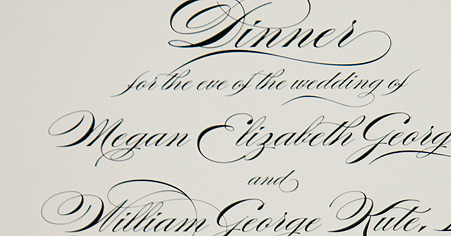 Dinner
for the eve of the wedding of
Megan Elizabeth Georg
and
William George Kute,